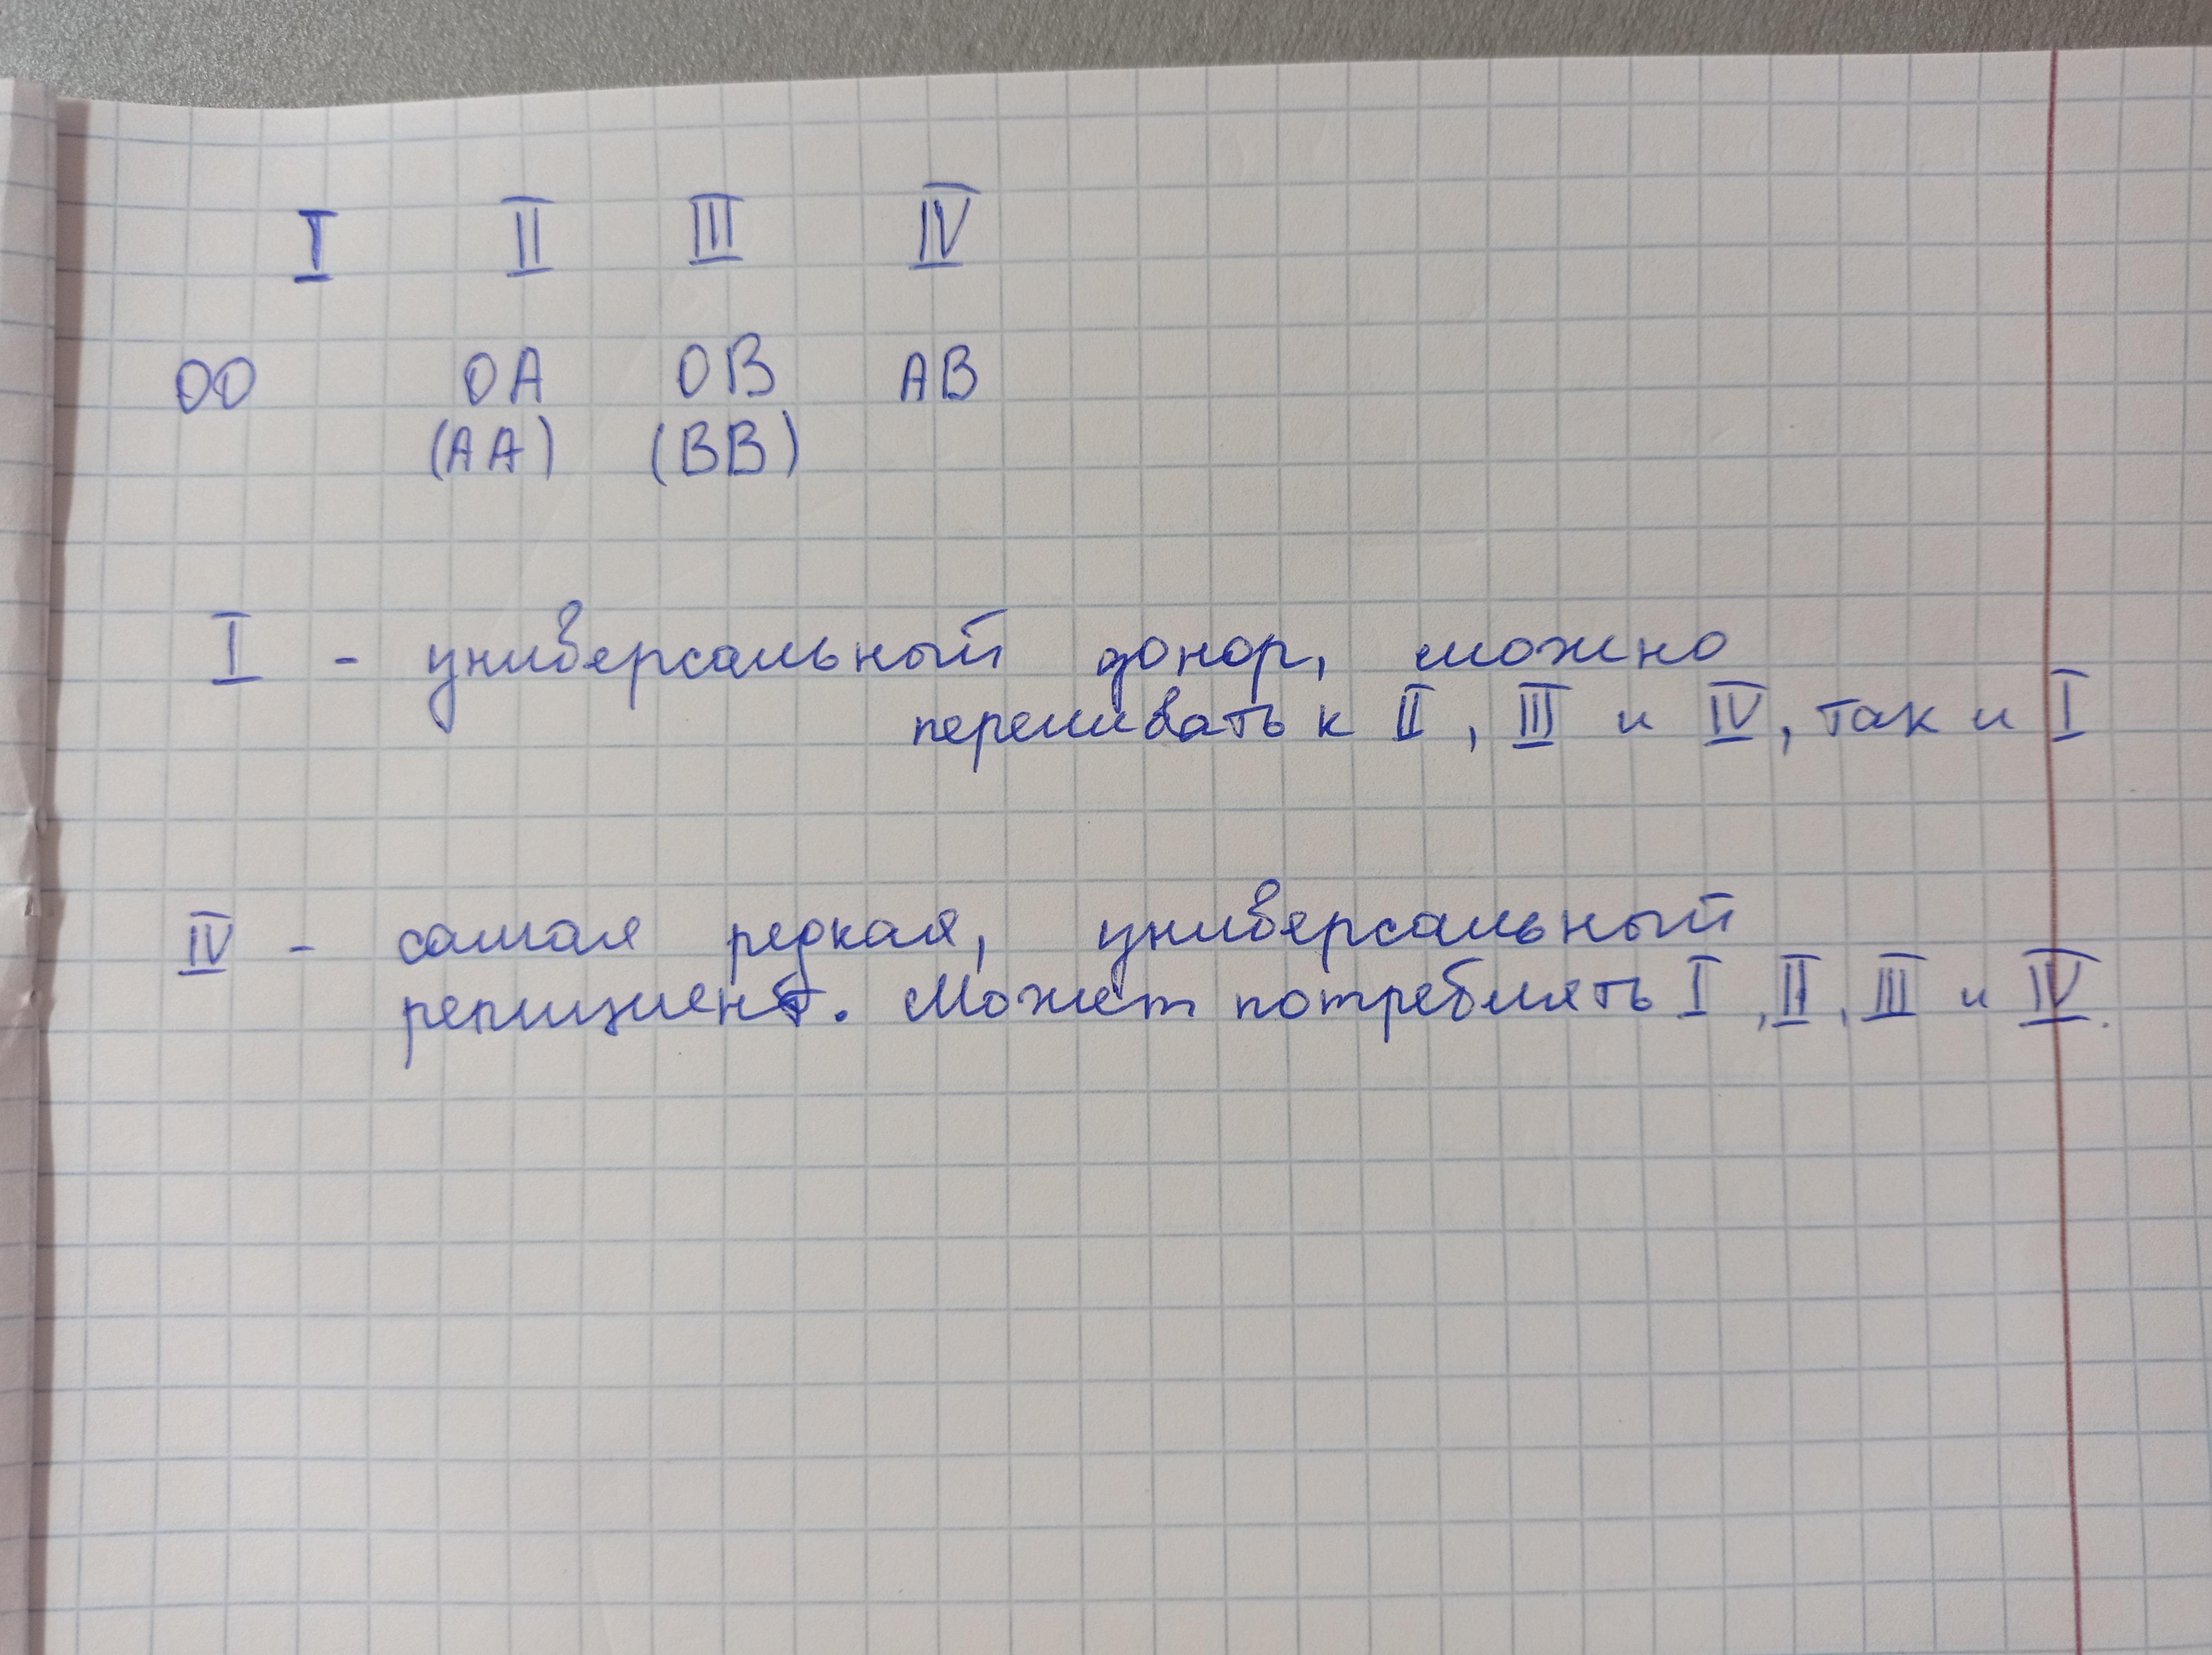 I II III IV
OO OA OB AB
(AA) (BB)
I - универсальный донор, можно
переливать к II, III и IV, так и I
IV - самая редкая, универсальный
репициент. Может потреблять I, II, III и IV.